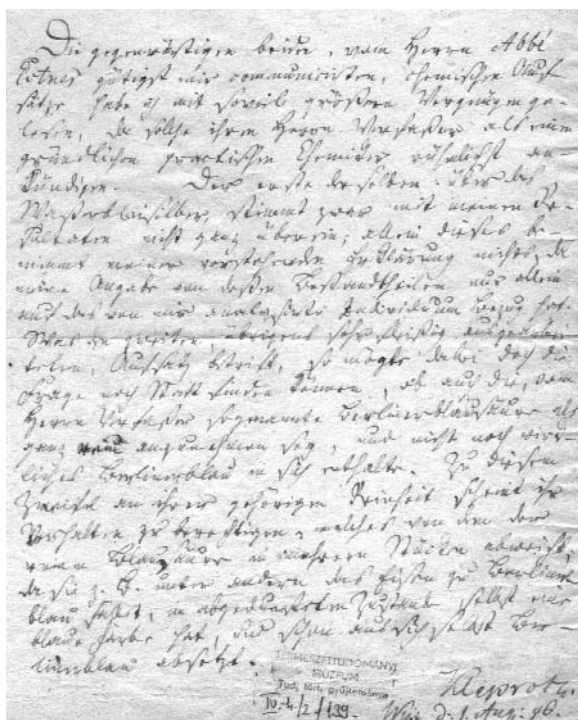 Die gegenwärtigen beiden, vom Herrn Abbé
Estner gütigst mir communicirten, chemischen Auf-
sätze habe ich mit soviel größern Vergnügen ge-
lesen, da solche ihren Herrn Verfasser als einen
gründlichen practischen Chemiker rühmlichst an-
kündigen. Der erste derselben, über das
Wasserbleisilber, stimmt zwar mit meinen Re-
sultaten nicht ganz überein; allein dieses be-
nimmt meiner vorstehenden Erklärung nichts, da
meine Angabe von dessen Bestandtheilen nur allein
auf das von mir analysirte Individuum Bezug hat.
Was den zweiten, übrigens sehr fleißig ausgearbei-
teten, Aufsatz betrift, so mögte dabei doch die
Frage noch Statt finden können, ob auch die, vom
Herrn Verfasser sogenannte Berlinerblausäure als
ganz rein anzunehmen sey, und nicht noch wirk-
liches Berlinerblau in sich enthalte. Zu diesem
Zweifel an ihrer gehörigen Reinheit scheint ihr
Verhalten zu berechtigen, welches von dem der
reinen Blausäure in mehrern Stücken abweicht,
da sie z. B. unter andern das Eisen zu Berliner-
blau fället, in abgedunstetem Zustande selbst eine
blaue Farbe hat, und schon aus sich selbst Ber-
linerblau absetzt.
TERMÉSZETTUDOMÁNYI
MÚZEUM
Tud. tört. gyűjtemény
IV. 4/2/139.
Klaproth.
Wien d. 1. Aug. 96.